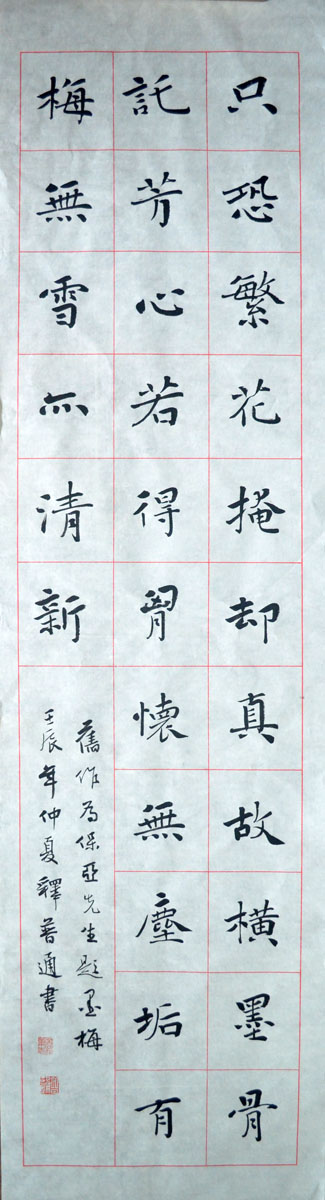 只恐繁花掩却真故橫墨骨
託芳心若得胷懷無塵垢有
梅無雪亦清新
舊作為保亞先生題墨梅
壬辰年仲夏釋普通書